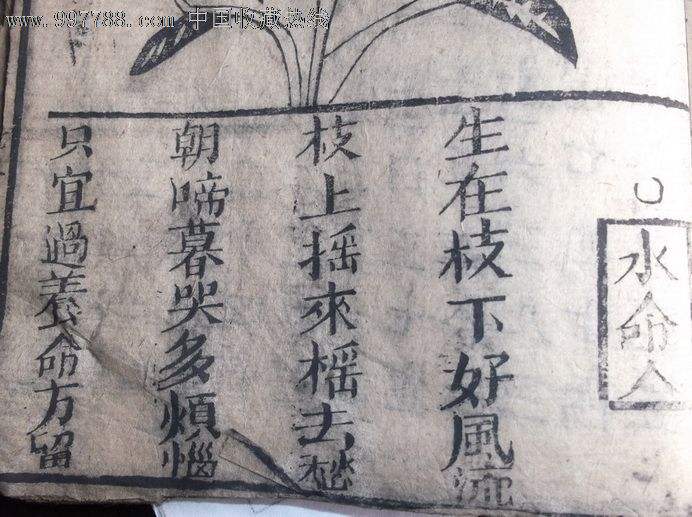 www.997788.com 中国收藏热线
水命人
生在枝下好風流
枝上摇來榣去愁
朝啼暮哭多煩惱
只宜過養命方留